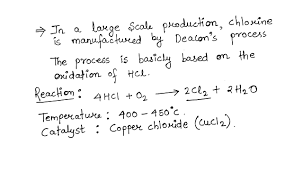 ⇒ In a large scale production, chlorine
is manufactured by Deacon's process
The process is basicly based on the
oxidation of HCl.
Reaction: 4HCl + O₂ → 2Cl₂ + 2H₂O
Temperature: 400 - 450°C.
Catalyst : Copper chloride (CuCl₂).